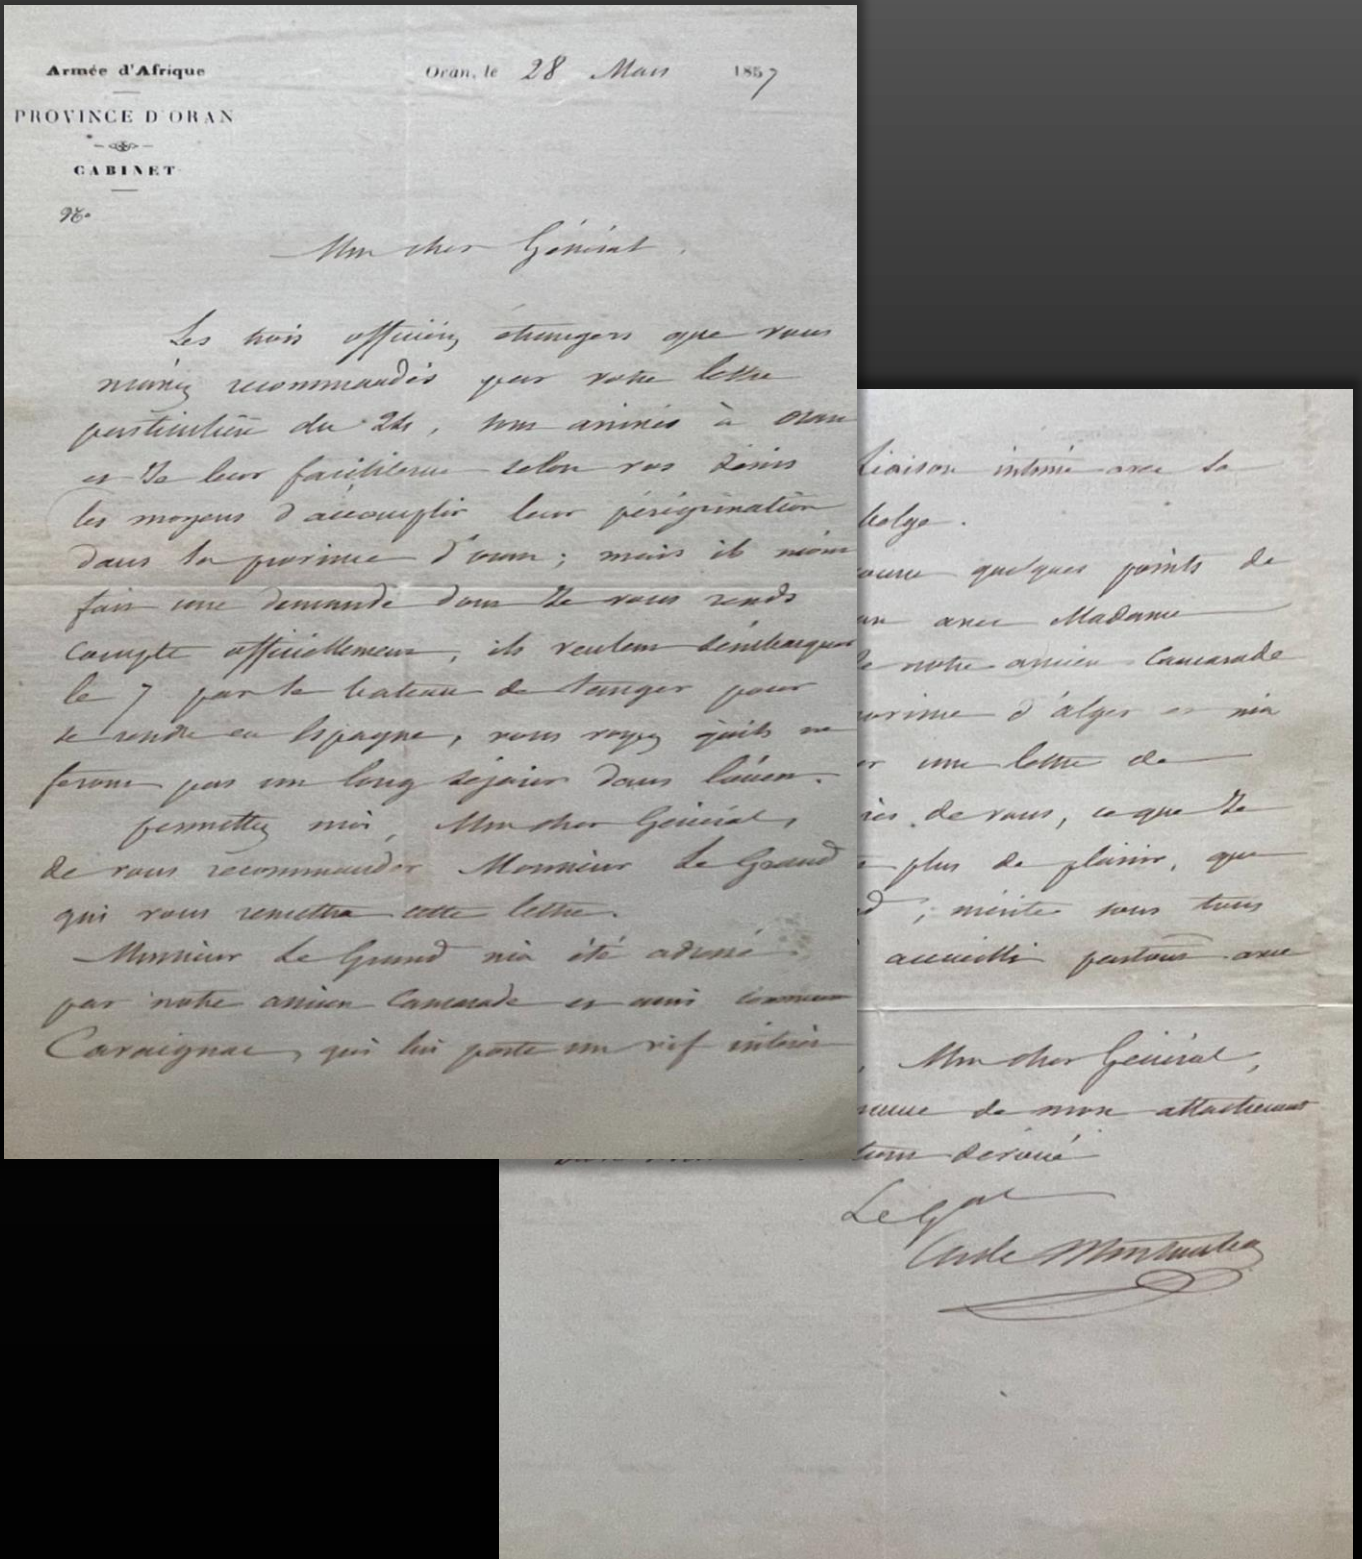 Armée d'Afrique
PROVINCE D'ORAN
CABINET
N°
Oran, le 28 Mars 1857
Mon cher Général,
Les trois officiers étrangers que vous
m'aviez recommandés par votre lettre
particulière du 24, sont arrivés à Oran
et Je leur faciliterai selon vos désirs
les moyens d'accomplir leur pérégrination
dans la province d'oran; mais ils m'ont
fait une demande dont Je vous rends
Compte officiellement, ils veulent s'embarquer
le 7 par le bateau de tanger pour
se rendre en Espagne, vous voyez qu'ils ne
feront pas un long séjour dans l'ouest.
permettez moi, Mon cher Général,
de vous recommander Monsieur Le Grand
qui vous remettra cette lettre.
Monsieur Le Grand m'a été adressé
par notre ancien Camarade et ami commun
Cavaignac, qui lui porte un vif intérêt
liaison intime avec la
belge.
quelques points de
avec Madame
notre ancien Camarade
d'alger et m'a
une lettre de
de vous, ce que Je
plus de plaisir, que
; mérite sous tous
accueilli partout avec
, Mon cher Général,
de mon attachement
dévoué
Le Gal
C de Montauban